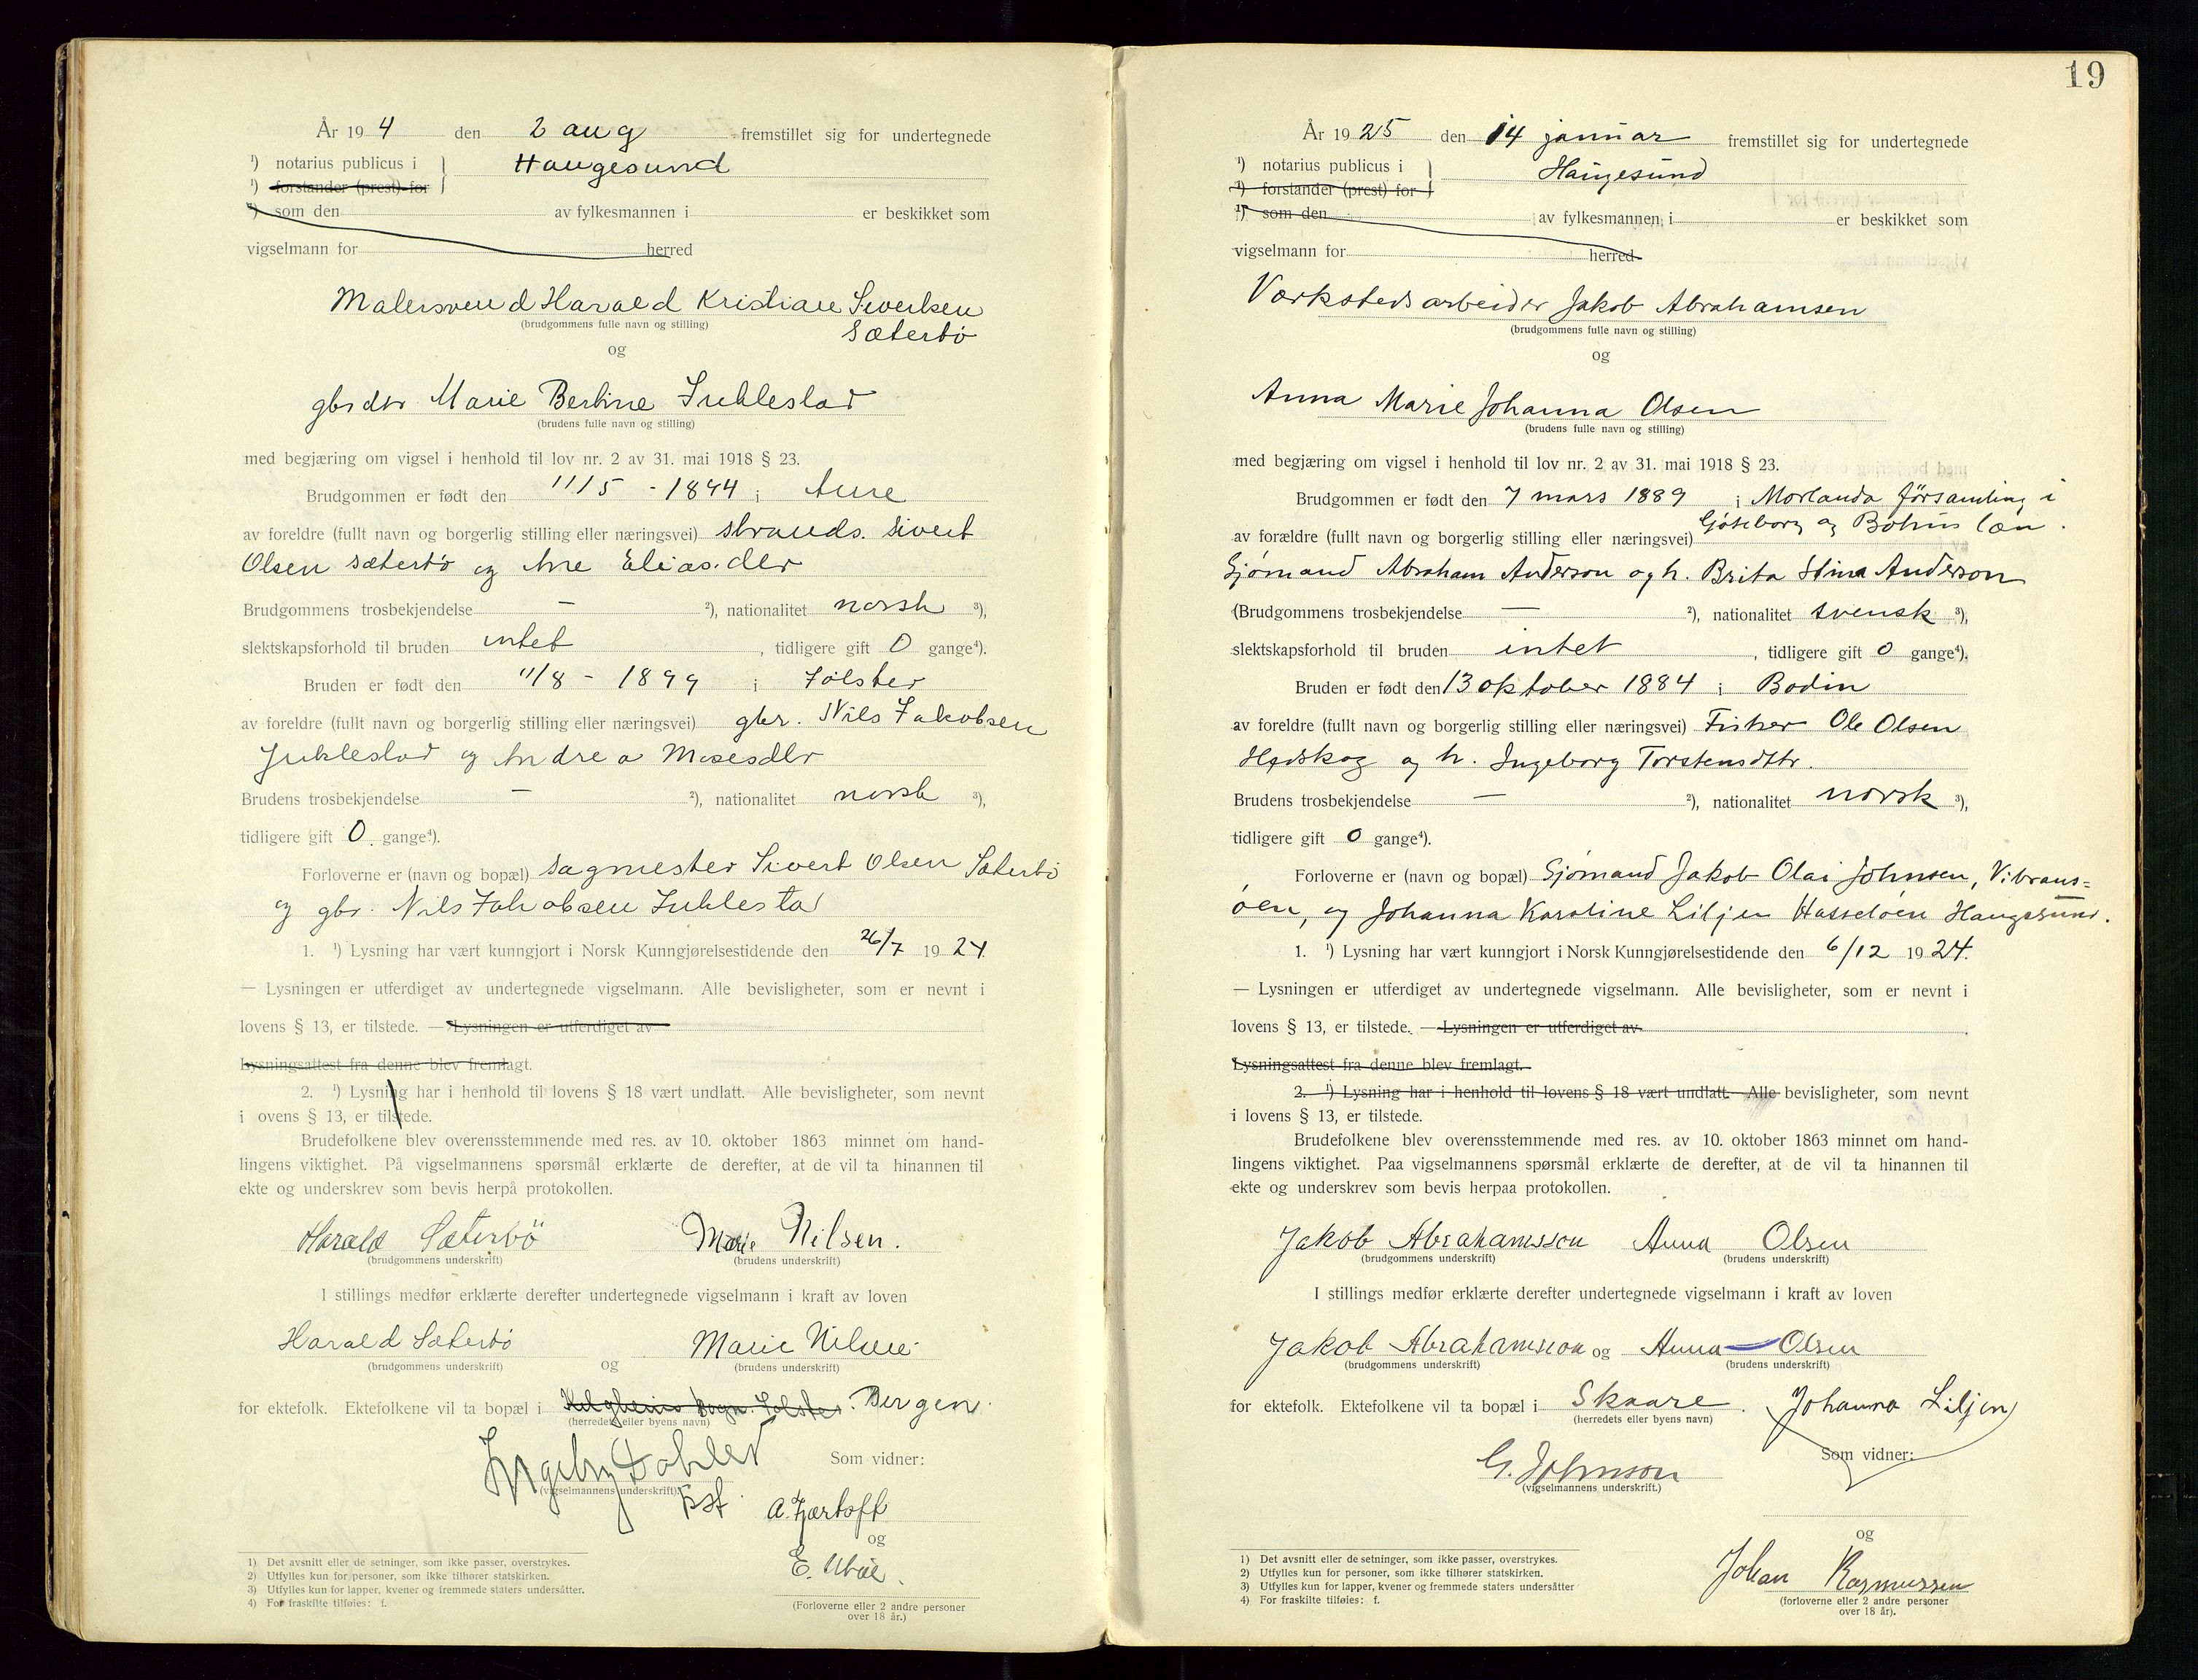 År 19 4 den 2 aug fremstillet sig for undertegnede
¹) notarius publicus i } Haugesund
¹) forstander (prest) for
¹) som den av fylkesmannen i er beskikket som
vigselmann for herred
Malersvend Harald Kristian Sivertsen
(brudgommens fulle navn og stilling) Sæterbø
og
gbrdtr Marie Bertine
(brudens fulle navn og stilling)
med begjæring om vigsel i henhold til lov nr. 2 av 31. mai 1918 § 23.
Brudgommen er født den i Aure
av foreldre (fullt navn og borgerlig stilling eller næringsvei) strands. Sivert
Olsen Sæterbø og Ane Elias.dtr
Brudgommens trosbekjendelse — ²), nationalitet norsk ³),
slektskapsforhold til bruden intet , tidligere gift 0 gange⁴).
Bruden er født den 11/8 - 1899 i Jølster
av foreldre (fullt navn og borgerlig stilling eller næringsvei) gbr. Nils Jakobsen
og Andrea Mosesdtr
Brudens trosbekjendelse — ²), nationalitet norsk ³),
tidligere gift 0 gange⁴).
Forloverne er (navn og bopæl) sagmester Sivert Olsen Sæterbø
og gbr. Nils Jakobsen
1. ¹) Lysning har vært kunngjort i Norsk Kunngjørelsestidende den 26/7 19 24
— Lysningen er utferdiget av undertegnede vigselmann. Alle bevisligheter, som er nevnt i
lovens § 13, er tilstede. — Lysningen er utferdiget av
Lysningsattest fra denne blev fremlagt.
2. ¹) Lysning har i henhold til lovens § 18 vært undlatt. Alle bevisligheter, som nevnt
i ovens § 13, er tilstede.
Brudefolkene blev overensstemmende med res. av 10. oktober 1863 minnet om hand-
lingens viktighet. På vigselmannens spørsmål erklærte de derefter, at de vil ta hinannen til
ekte og underskrev som bevis herpå protokollen.
Harald Sæterbö Marie Nilsen.
(brudgommens underskrift) (brudens underskrift)
I stillings medfør erklærte derefter undertegnede vigselmann i kraft av loven
Harald Sæterbø og Marie Nilsen
(brudgommens underskrift) (brudens underskrift)
for ektefolk. Ektefolkene vil ta bopæl i Jølster. Bergen
(herredets eller byens navn)
Som vidner:
(vigselmannens underskrift)
og
E.
(Forloverne eller 2 andre personer
over 18 år.)
1) Det avsnitt eller de setninger, som ikke passer, overstrykes.
2) Utfylles kun for personer, som ikke tilhører statskirken.
3) Utfylles kun for lapper, kvener og fremmede staters undersåtter.
4) For fraskilte tilføies: f.
19
År 19 25 den 14 januar fremstillet sig for undertegnede
¹) notarius publicus i } Haugesund
¹) forstander (prest) for
¹) som den av fylkesmannen i er beskikket som
vigselmann for herred
Værkstedsarbeider Jakob Abrahamsen
(brudgommens fulle navn og stilling)
og
Anna Marie Johanna Olsen
(brudens fulle navn og stilling)
med begjæring om vigsel i henhold til lov nr. 2 av 31. mai 1918 § 23.
Brudgommen er født den 7 mars 1889 i Morlanda församling i
av forældre (fullt navn og borgerlig stilling eller næringsvei) Gøteborg og Bohus læn.
Sjømand Abraham Anderson og h. Brita Stina Anderson
(Brudgommens trosbekjendelse — ²), nationalitet svensk ³),
slektskapsforhold til bruden intet , tidligere gift 0 gange⁴).
Bruden er født den 13 oktober 1884 i Bodin
av foreldre (fullt navn og borgerlig stilling eller næringsvei) Fisker Ole Olsen
og h. Ingeborg Torstensdttr.
Brudens trosbekjendelse — ²), nationalitet norsk ³),
tidligere gift 0 gange⁴).
Forloverne er (navn og bopæl) Sjømand Jakob Olai Johnsen, Vibrans=
øen, og Johanna Karoline Liljen Hasseløen Haugesund.
1. ¹) Lysning har vært kunngjort i Norsk Kunngjørelsestidende den 6/12 19 24.
— Lysningen er utferdiget av undertegnede vigselmann. Alle bevisligheter, som er nevnt i
lovens § 13, er tilstede. — Lysningen er utferdiget av
Lysningsattest fra denne blev fremlagt.
2. ¹) Lysning har i henhold til lovens § 18 vært undlatt. Alle bevisligheter, som nevnt
i lovens § 13, er tilstede.
Brudefolkene blev overensstemmende med res. av 10. oktober 1863 minnet om hand-
lingens viktighet. Paa vigselmannens spørsmål erklærte de derefter, at de vil ta hinannen til
ekte og underskrev som bevis herpaa protokollen.
Jakob Abrahamsson Anna Olsen
(brudgommens underskrift) (brudens underskrift)
I stillings medfør erklærte derefter undertegnede vigselmann i kraft av loven
Jakob Abrahamsson og Anna Olsen
(brudgommens underskrift) (brudens underskrift)
for ektefolk. Ektefolkene vil ta bopæl i Skaare. Johanna Liljen
(herredets eller byens navn)
Som vidner:
G. Johnson
(vigselmannens underskrift.)
og
Johan Rasmussen
(forloverne eller 2 andre personer
over 18 år).
1) Det avsnitt eller de setninger, som ikke passer, overstrykes.
2) Utfylles kun for personer, som ikke tilhører statskirken.
3) Utfylles kun for lapper, kvener og fremmede staters undersåtter
4) For fraskilte tilføies: f.